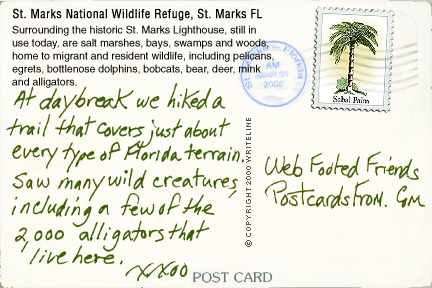 St. Marks National Wildlife Refuge, St. Marks FL
Surrounding the historic St. Marks Lighthouse, still in
use today, are salt marshes, bays, swamps and woods,
home to migrant and resident wildlife, including pelicans,
egrets, bottlenose dolphins, bobcats, bear, deer, mink
and alligators.
At daybreak we hiked a
trail that covers just about
every type of Florida terrain.
Saw many wild creatures,
including a few of the
2,000 alligators that
live here.
xxoo
© COPYRIGHT 2000 WRITELINE
Florida
AM
2000
Sabal Palm
Web Footed Friends
PostcardsFrom.Com
POST CARD